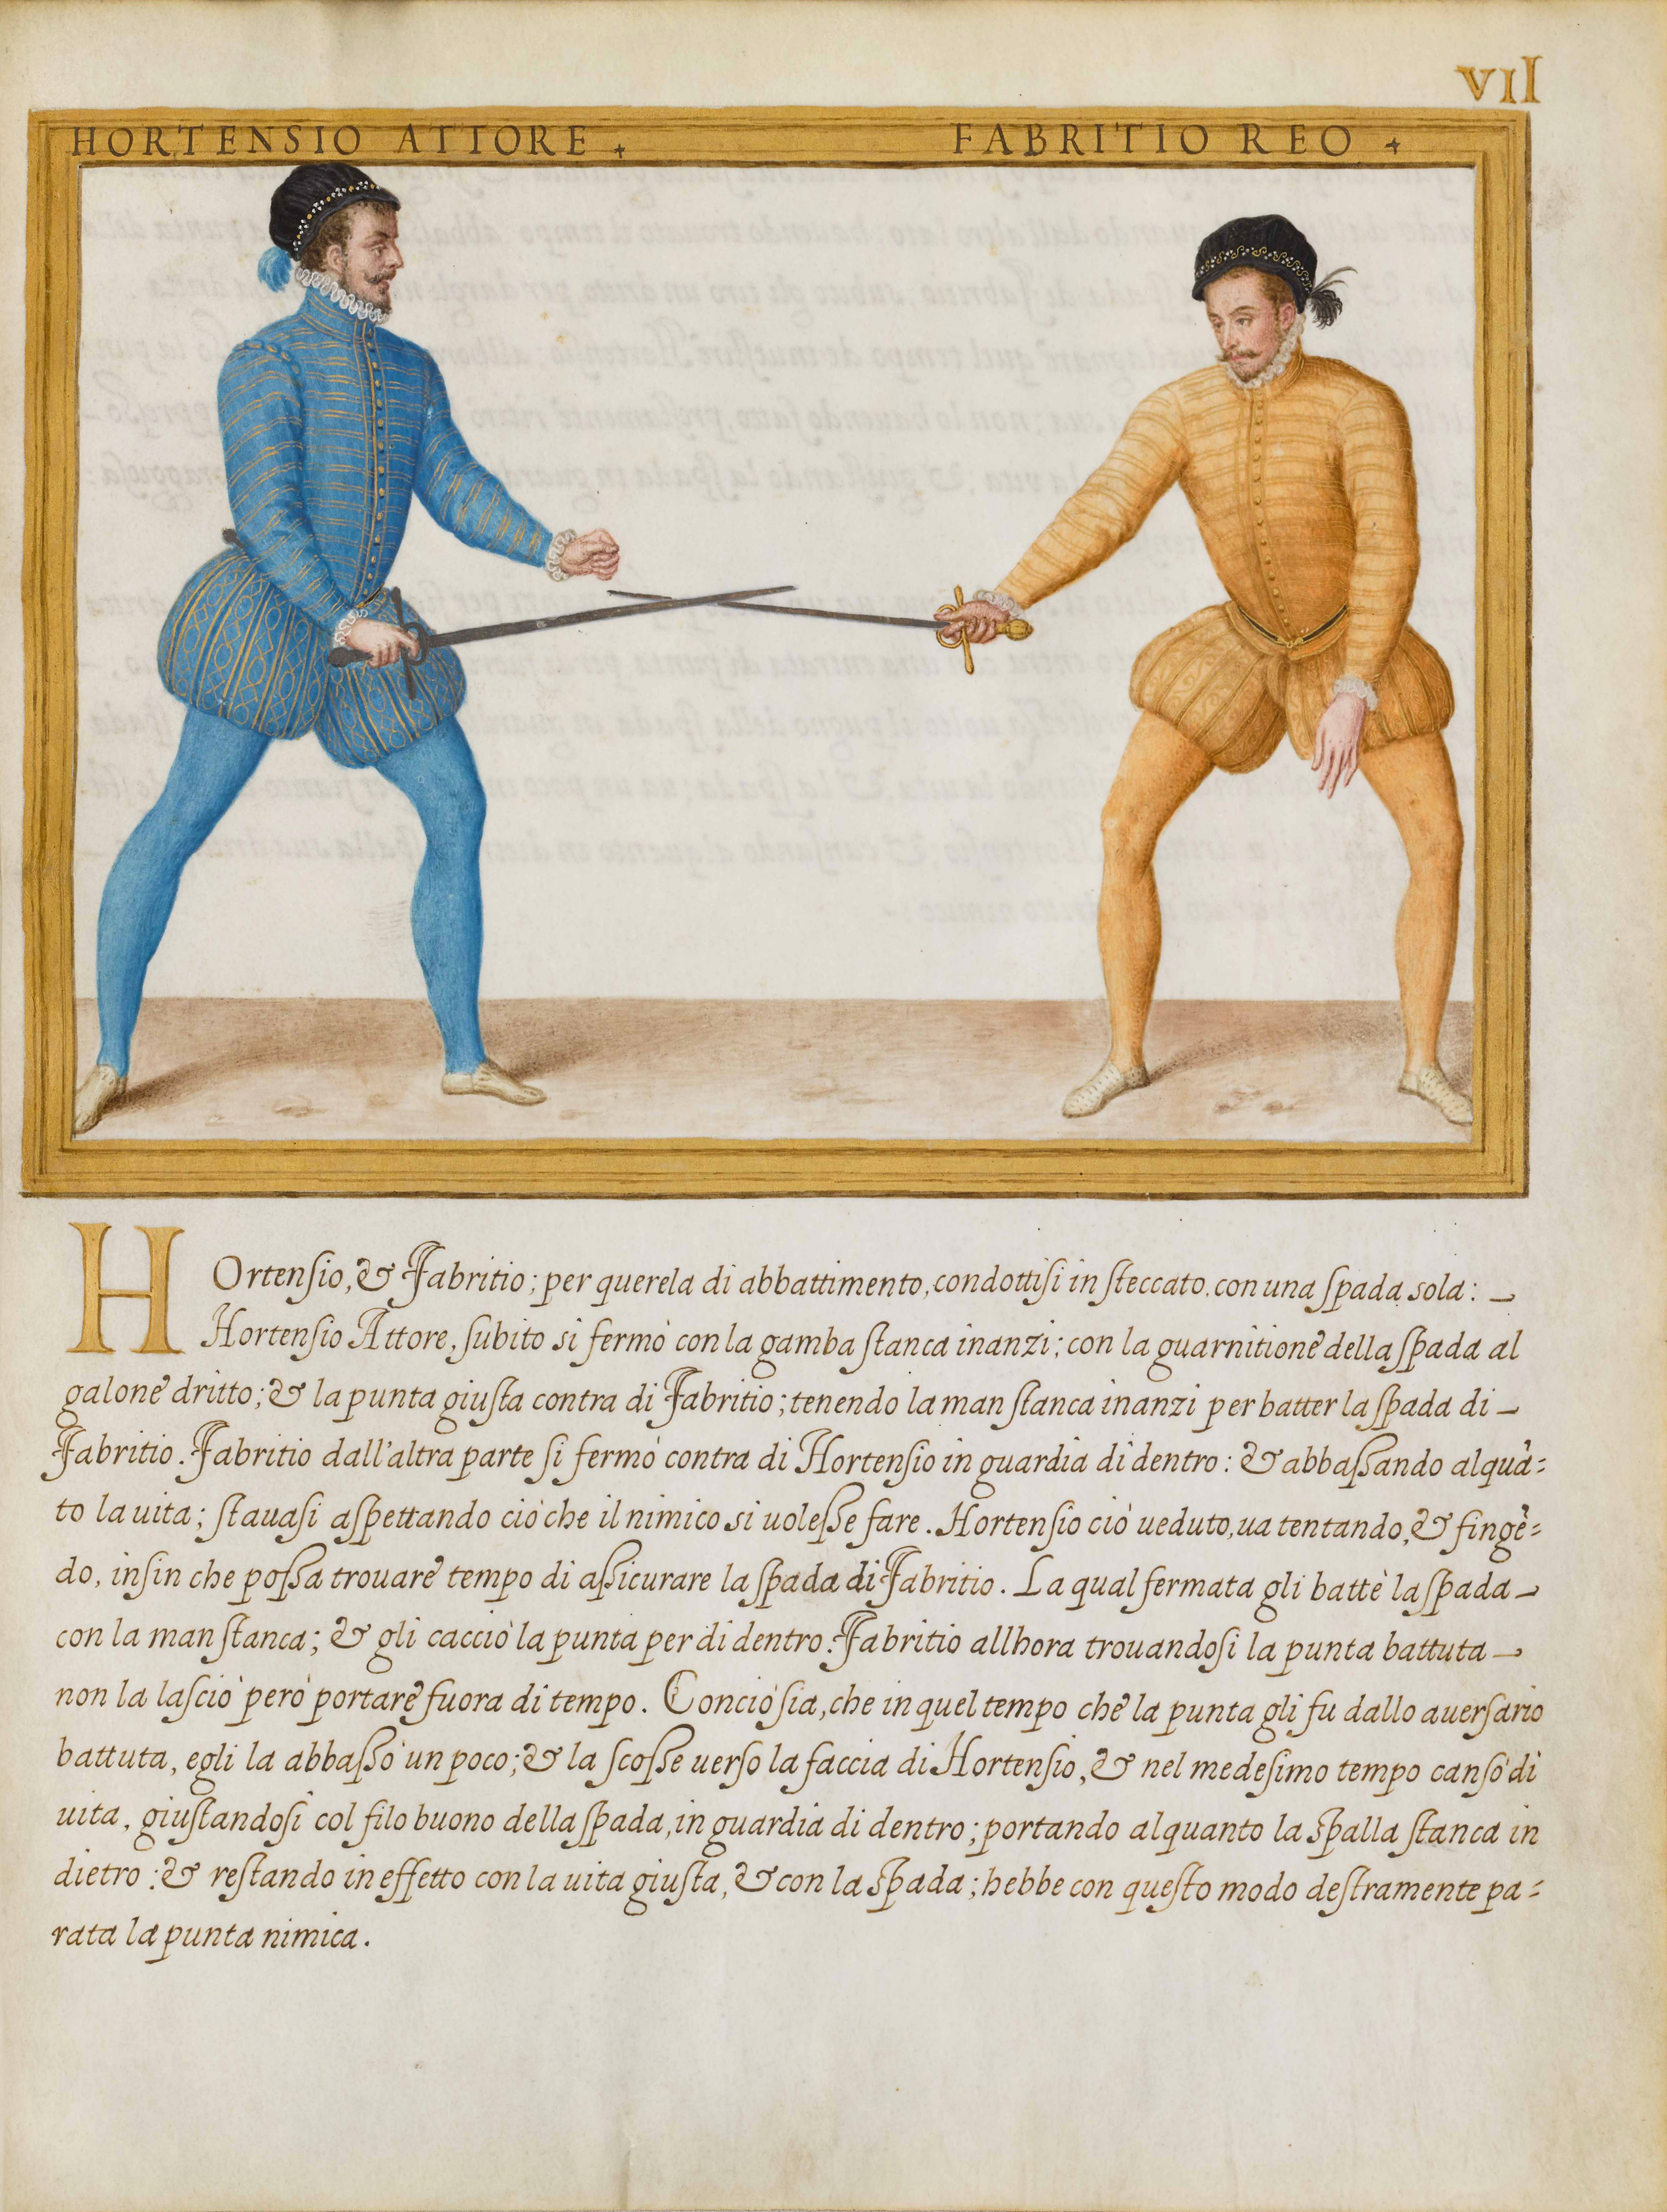 VII
HORTENSIO ATTORE
FABRITIO REO
HOrtenſio, & Fabritio; per querela di abbattimento, condottiſi in ſteccato, con una ſpada sola:
Hortenſio Attore, ſubito si fermò con la gamba ſtanca inanzi; con la guarnitione della ſpada al
galone dritto; & la punta giuſta contra di Fabritio; tenendo la man ſtanca inanzi per batter la ſpada di
Fabritio. Fabritio dall'altra parte ſi fermò contra di Hortenſio in guardia di dentro: & abbaſſando alquā=
to la uita; ſtauaſi aſpettando ciò che il nimico si uoleſſe fare. Hortenſio ciò ueduto, ua tentando, & fingē=
do, inſin che poſſa trouare tempo di aſſicurare la ſpada di Fabritio. La qual fermata gli battè la ſpada
con la man ſtanca; & gli cacciò la punta per di dentro. Fabritio allhora trouandoſi la punta battuta
non la laſciò però portare fuora di tempo. Conciò ſia, che in quel tempo che la punta gli fu dallo auerſario
battuta, egli la abbaſſò un poco; & la ſcoſſe uerſo la faccia di Hortenſio, & nel medeſimo tempo canſò di
uita, giuſtandoſi col filo buono della ſpada, in guardia di dentro; portando alquanto la spalla ſtanca in
dietro: & reſtando in effetto con la uita giuſta, & con la spada; hebbe con queſto modo deſtramente pa=
rata la punta nimica.